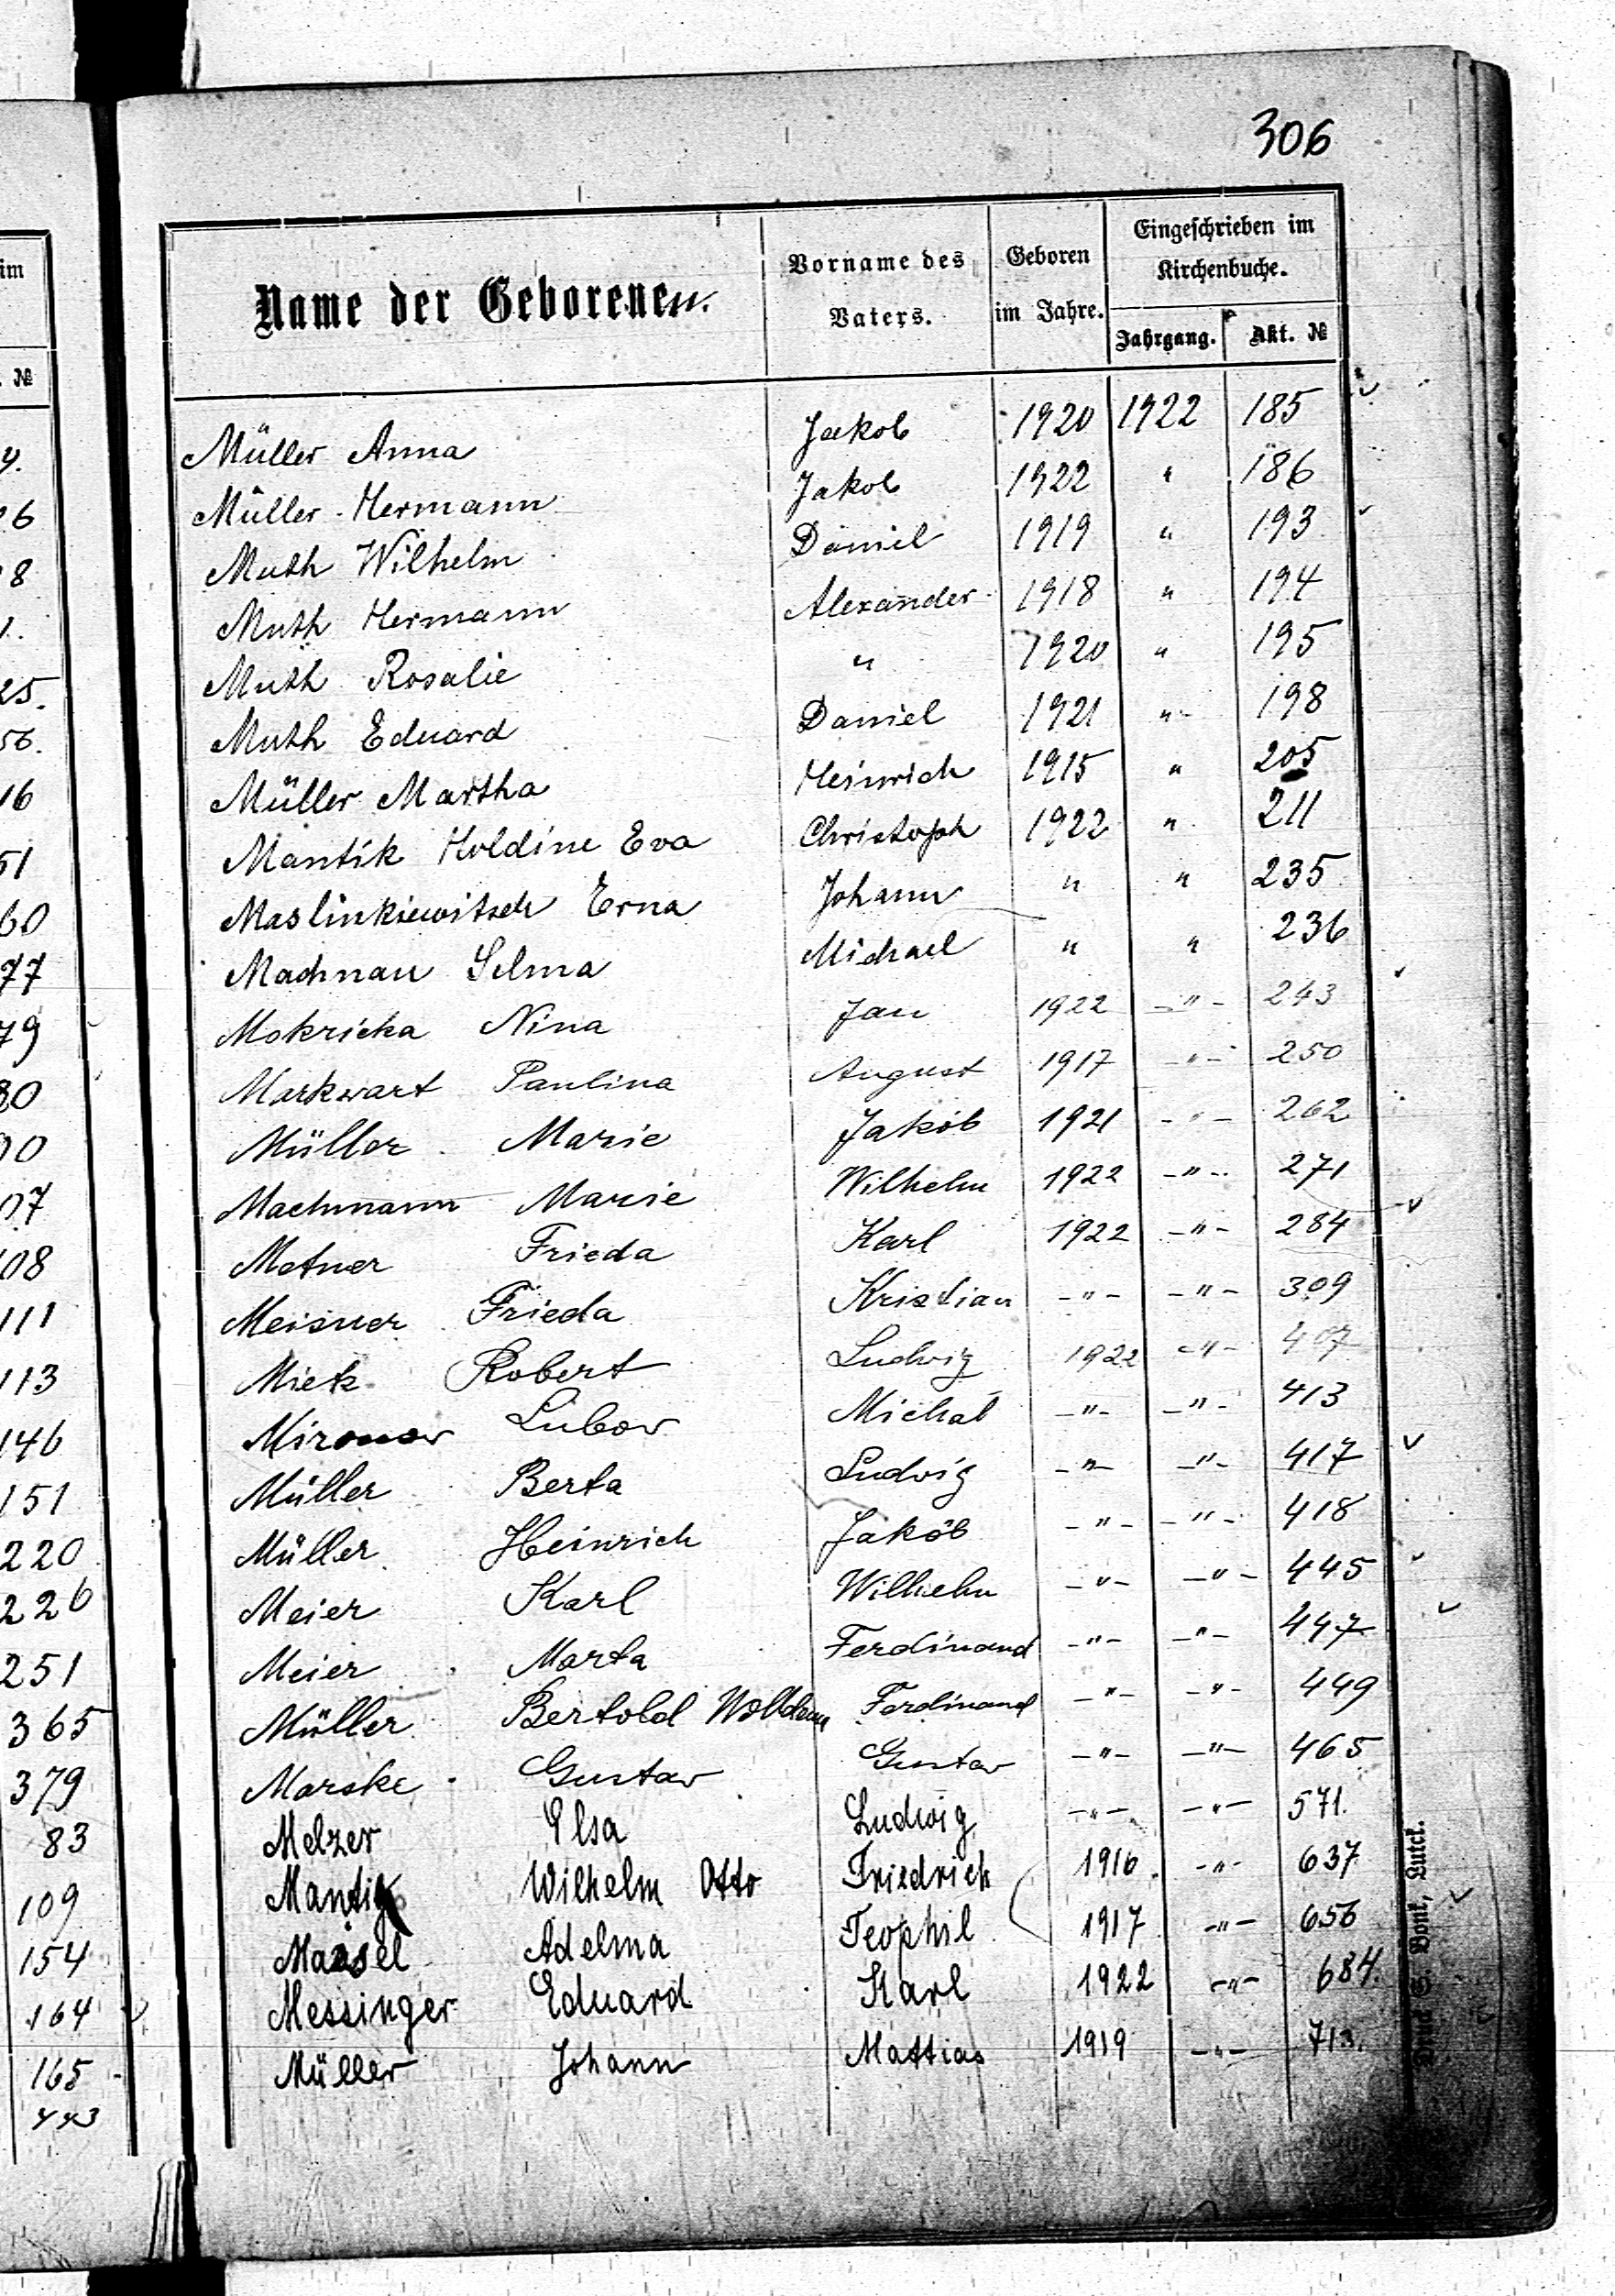 306
im
Name der Geborenen.
Vorname des Vaters.
Geboren im Jahre.
Eingeschrieben im Kirchenbuche.
Jahrgang.
Akt. №
. №
Müller Anna Jakob 1920 1922 185
Müller Hermann Jakob 1922 " 186
Muth Wilhelm Daniel 1919 " 193
Muth Hermann Alexander 1918 " 194
Muth Rosalie " 1920 " 195
Muth Eduard Daniel 1921 " 198
Müller Martha Heinrich 1915 " 205
Mantik Holdine Eva Christoph 1922 " 211
Maslinkiewitsch Erna Johann " " 235
Machnau Selma Michael " " 236
Mokricka Nina Jan 1922 -"- 243
Markwart Paulina August 1917 -"- 250
Müller Marie Jakób 1921 -"- 262
Machmann Marie Wilhelm 1922 -"- 271
Metner Frieda Karl 1922 -"- 284
Meisner Frieda Kristian -"- -"- 309
Miek Robert Ludwig 1922 -"- 407
Mironow Lubow Michał -"- -"- 413
Müller Berta Ludwig -"- -"- 417
Müller Heinrich Jakób -"- -"- 418
Meier Karl Wilhelm -"- -"- 445
Meier Marta Ferdinand -"- -"- 447
Müller Bertold Ferdinand -"- -"- 449
Marske Gustav Gustav -"- -"- 465
Melzer Elsa Ludwig -"- -"- 571.
Mantig Wilhelm Otto Friedrich 1916 -"- 637
Adelma Teophil 1917 -"- 656
Messinger Eduard Karl 1922 -"- 684.
Müller Johann Mattias 1919 -"- 713.
4.
16
18
1.
25.
56.
16
51
60
77
79
80
90
07
108
111
113
146
151
220
226
251
365
379
83
109
154
164
165
443
Druck S. Bonk, Luck.